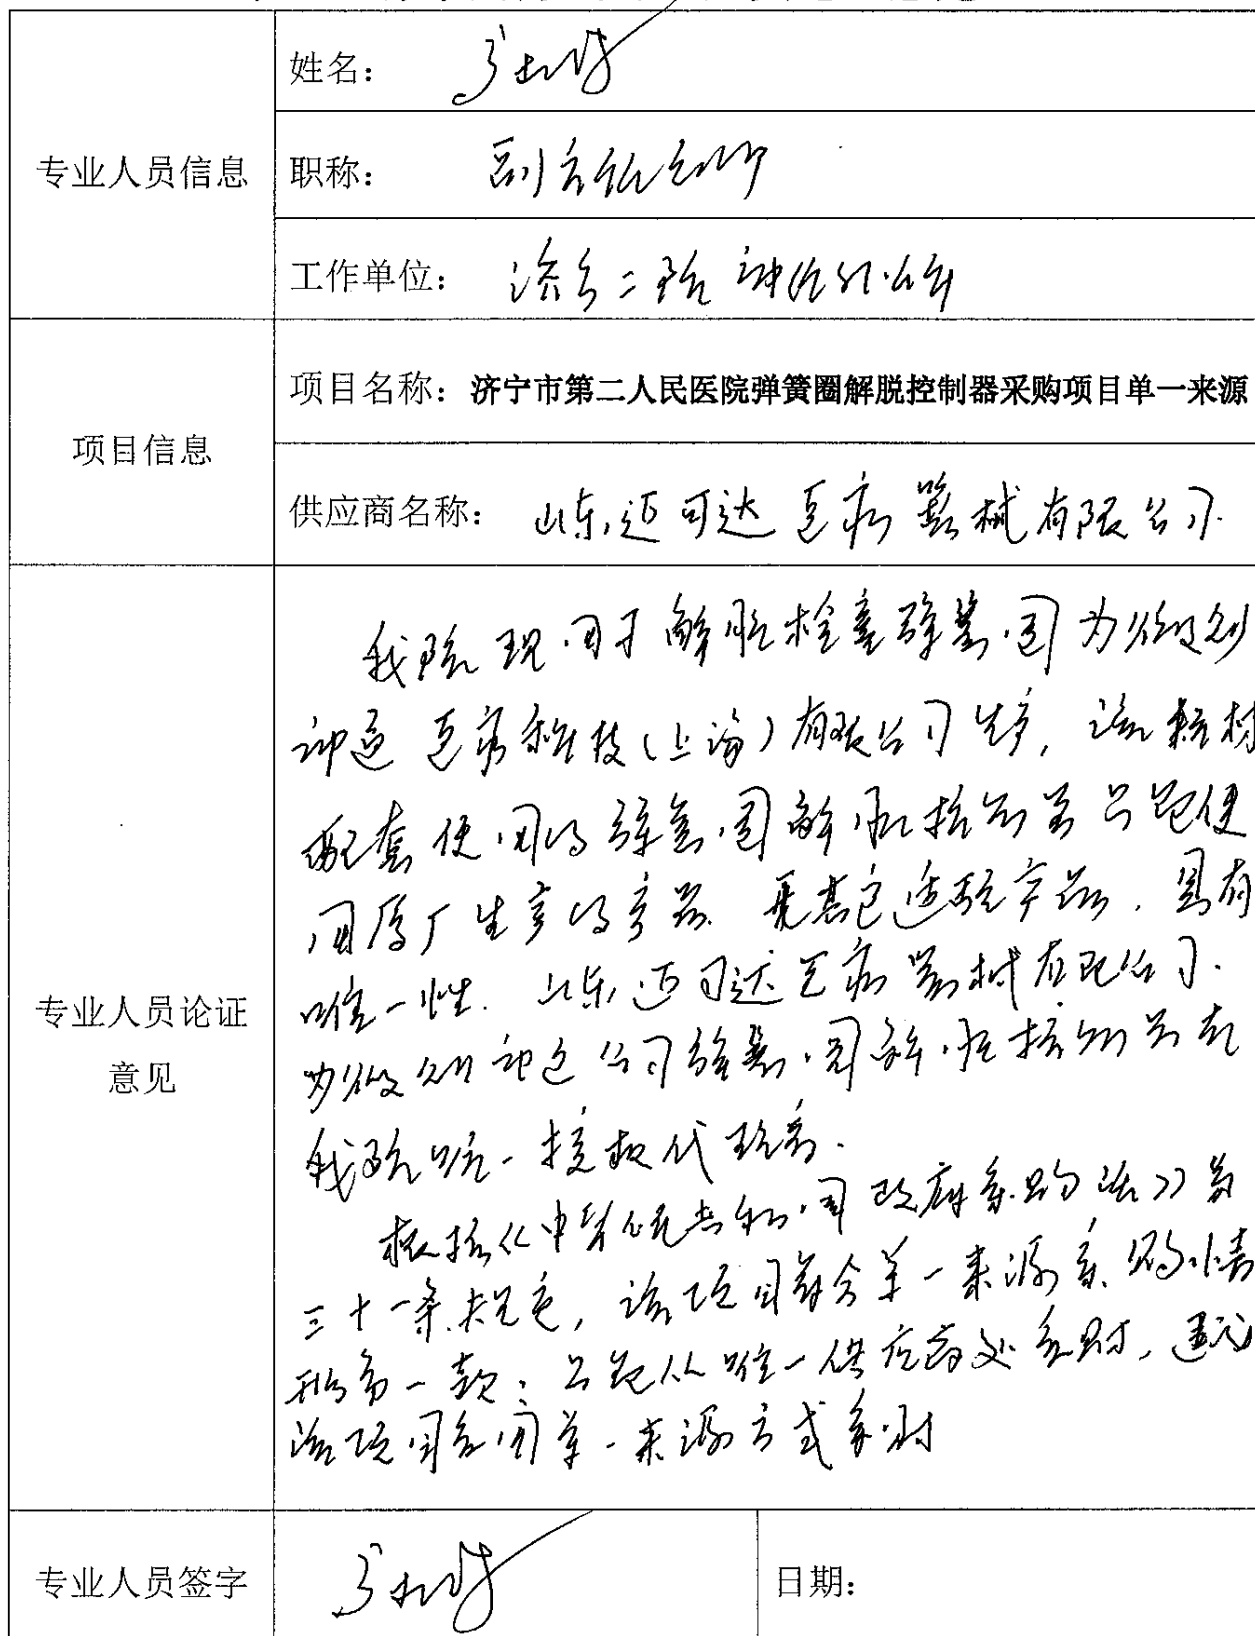 姓名：
专业人员信息
职称： 副主任医师
工作单位： 济宁二院 神经外科
项目名称：济宁市第二人民医院弹簧圈解脱控制器采购项目单一来源
项目信息
供应商名称： 山东迈可达医疗器械有限公司.
我院现用于解脱栓塞弹簧圈为微创
神通医疗科技（上海）有限公司生产，该耗材
配套使用的弹簧圈解脱控制器只能使
用原厂生产的产品 无其它适配产品，具有
唯一性. 山东迈可达医疗器械有限公司.
为微创神通公司弹簧圈解脱控制器在
我院唯一授权代理商.
专业人员论证
意见
根据《中华人民共和国政府采购法》第
三十一条规定，该项目符合单一来源采购情
形第一款：只能从唯一供应商处采购，建议
该项目采用单一来源方式采购
专业人员签字
日期：